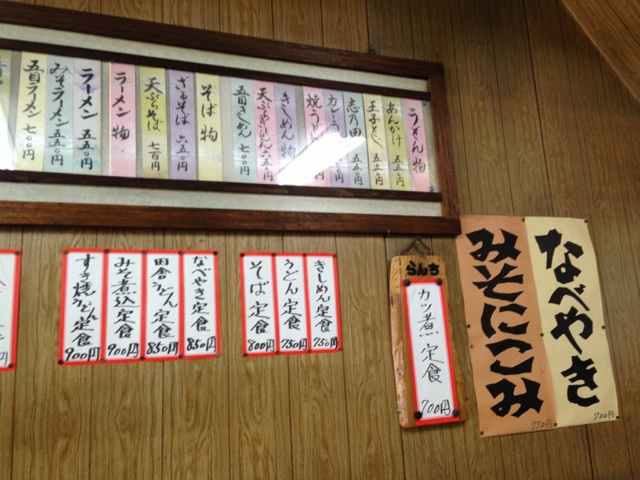 うどん物
あんかけ 五五〇円
玉子とじ 五五〇円
志乃田 五五〇円
焼うどん
きしめん物
五目きしめん 七〇〇円
そば物
ざるそば 六五〇円
天ぷらそば 七百円
ラーメン物
ラーメン 五五〇円
みそラーメン 五五〇円
五目ラーメン 七〇〇円
なべやき 700円
みそにこみ 750円
らんち
カツ煮定食 700円
きしめん定食 750円
うどん定食 750円
そば定食 800円
なべやき定食 850円
田舎うどん定食 850円
みそ煮込定食 900円
すき焼うどん定食 900円